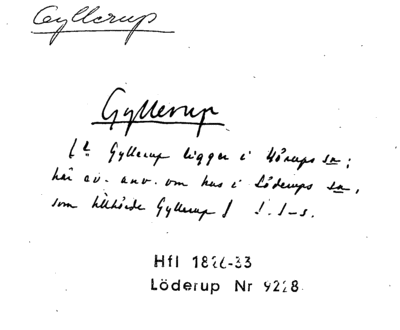 Gyllerup
Gyllerup
Gyllerup ligger i Hörups sn;
här av. anv. om hus i Löderups sn,
som tillhörde Gyllerup
Hfl 1826-33
Löderup Nr 9228